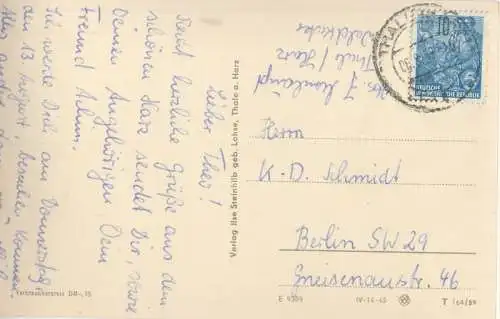 Lieber Theo!
Recht herzliche Grüße aus dem
schönen Harz sendet Dir, sowie
Deinen Angehörigen Dein
Freund Achim.
Ich werde Dich am Donnerstag,
den 13. August, besuchen kommen.
Alles andere dann
Verlag Ilse Steinhilb geb. Lohse, Thale a. Harz
Thale / Harz
THALE
10
DEUTSCHE
DEMOKRATISCHE REPUBLIK
Herrn
K.-D. Schmidt
Berlin SW 29
Gneisenaustr. 46
Verbraucherpreis DM -,15
E 9309
IV-14-45
T 164/59